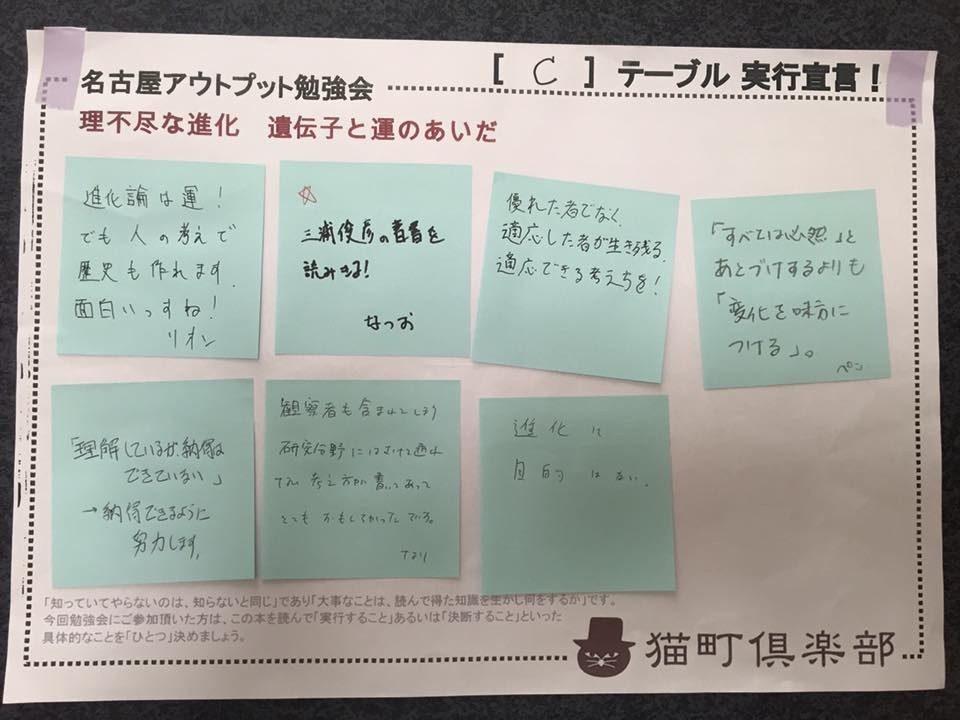 名古屋アウトプット勉強会
【 C 】 テーブル 実行宣言！
理不尽な進化　遺伝子と運のあいだ
進化論は運！
でも 人の考えで
歴史も作れます.
面白いっすね！
リオン
☆
三浦俊彦の著書を
読みきる！
なつお
優れた者でなく、
適応した者が生き残る.
適応できる考えちを！
「すべては必然」と
あとづけするよりも
「変化を味方に
つける」。
ペン
「理解しているが、納得は
できていない」
→納得できるように
努力します。
観察者も含まれてしまう
研究分野に
考え方が書いてあって
とても おもしろかったです。
進化に
目的はない。
「知っていてやらないのは、知らないと同じ」であり「大事なことは、読んで得た知識を生かし何をするか」です。
今回勉強会にご参加頂いた方は、この本を読んで「実行すること」あるいは「決断すること」といった
具体的なことを「ひとつ」決めましょう。
猫町倶楽部